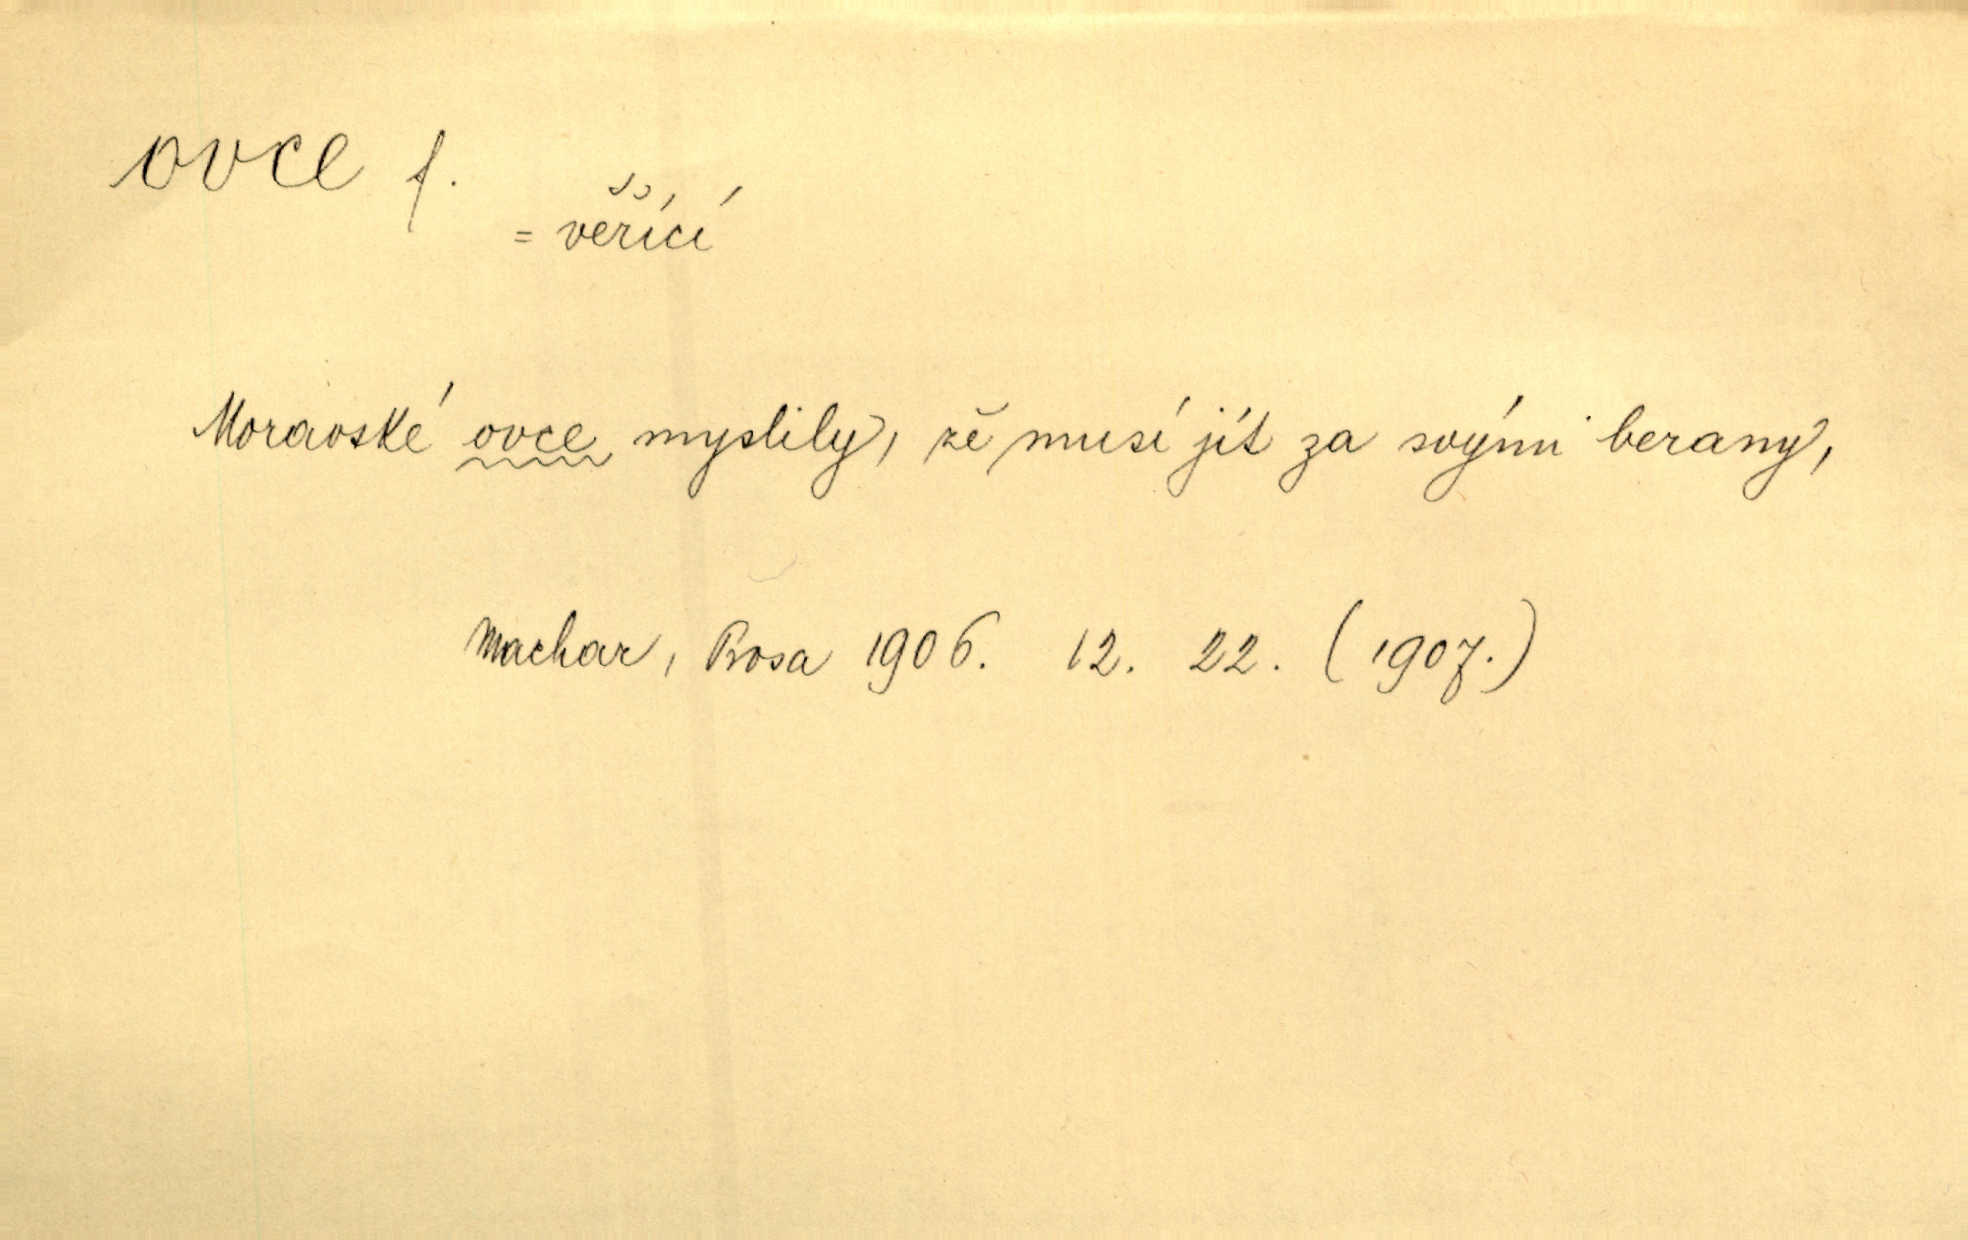 ovce f.
= věřící
Moravské ovce myslily, že musí jít za svými berany,
Machar, Prosa 1906. 12. 22. (1907.)